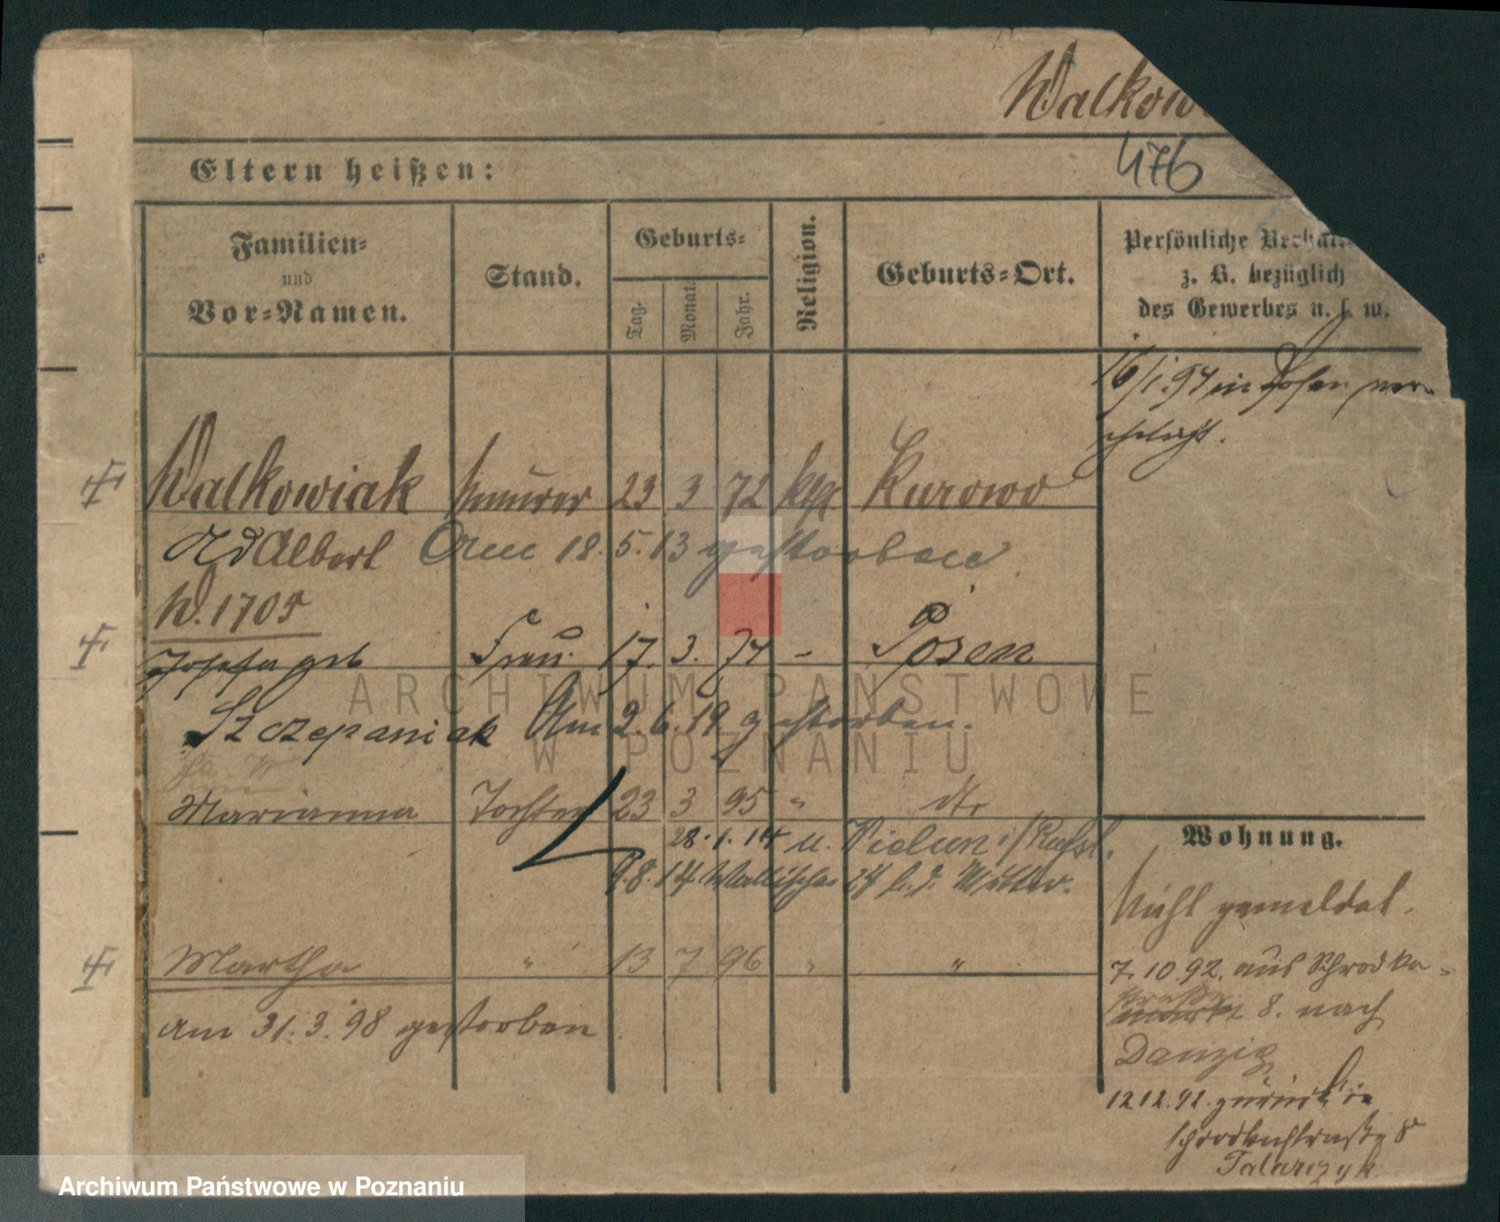 Walkow
476
Eltern heißen:
Familien- und Vor-Namen.
Stand.
Geburts-
Tag.
Monat.
Jahr.
Religion.
Geburts-Ort.
Persönliche
z. B. bezüglich
des Gewerbes u. s. w.
16/1.94 in Posen ver-
ehelicht.
Walkowiak Maurer 23 3 72 kath Kurowo
Adalbert Am 18.5.13 gestorben.
W. 1705
Josefa geb Frau 17. 3. 74 - Posen
Szczepaniak Am 2.6.19 gestorben.
Marianna Tochter 23 3 95 " dto
28.1.14 u. Wielun i/Russl.
9.8.14 Wallischei 74 b. d. Mutter.
Martha " 13 7 96 " "
am 31.3.98 gestorben
Wohnung.
Nicht gemeldet.
7.10 92. aus Schrodka-
8. nach
Danzig
12.12.92. zurück in
Schrodkastraße 8
Talarczyk.
ARCHIWUM PAŃSTWOWE
W POZNANIU
Archiwum Państwowe w Poznaniu